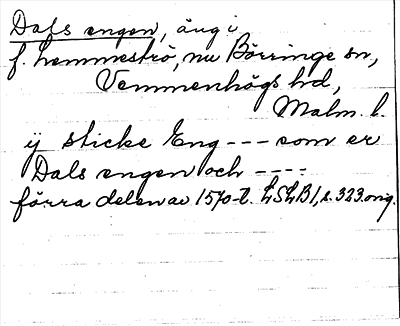 Dals engen, äng i
f. Lemmeströ, nu Börringe sn,
Vemmenhögs hd,
Malm. l.
ij sticke Eng --- som er
Dals engen och ----
förra delen av 1570-t. LSLB1, s. 323. orig.